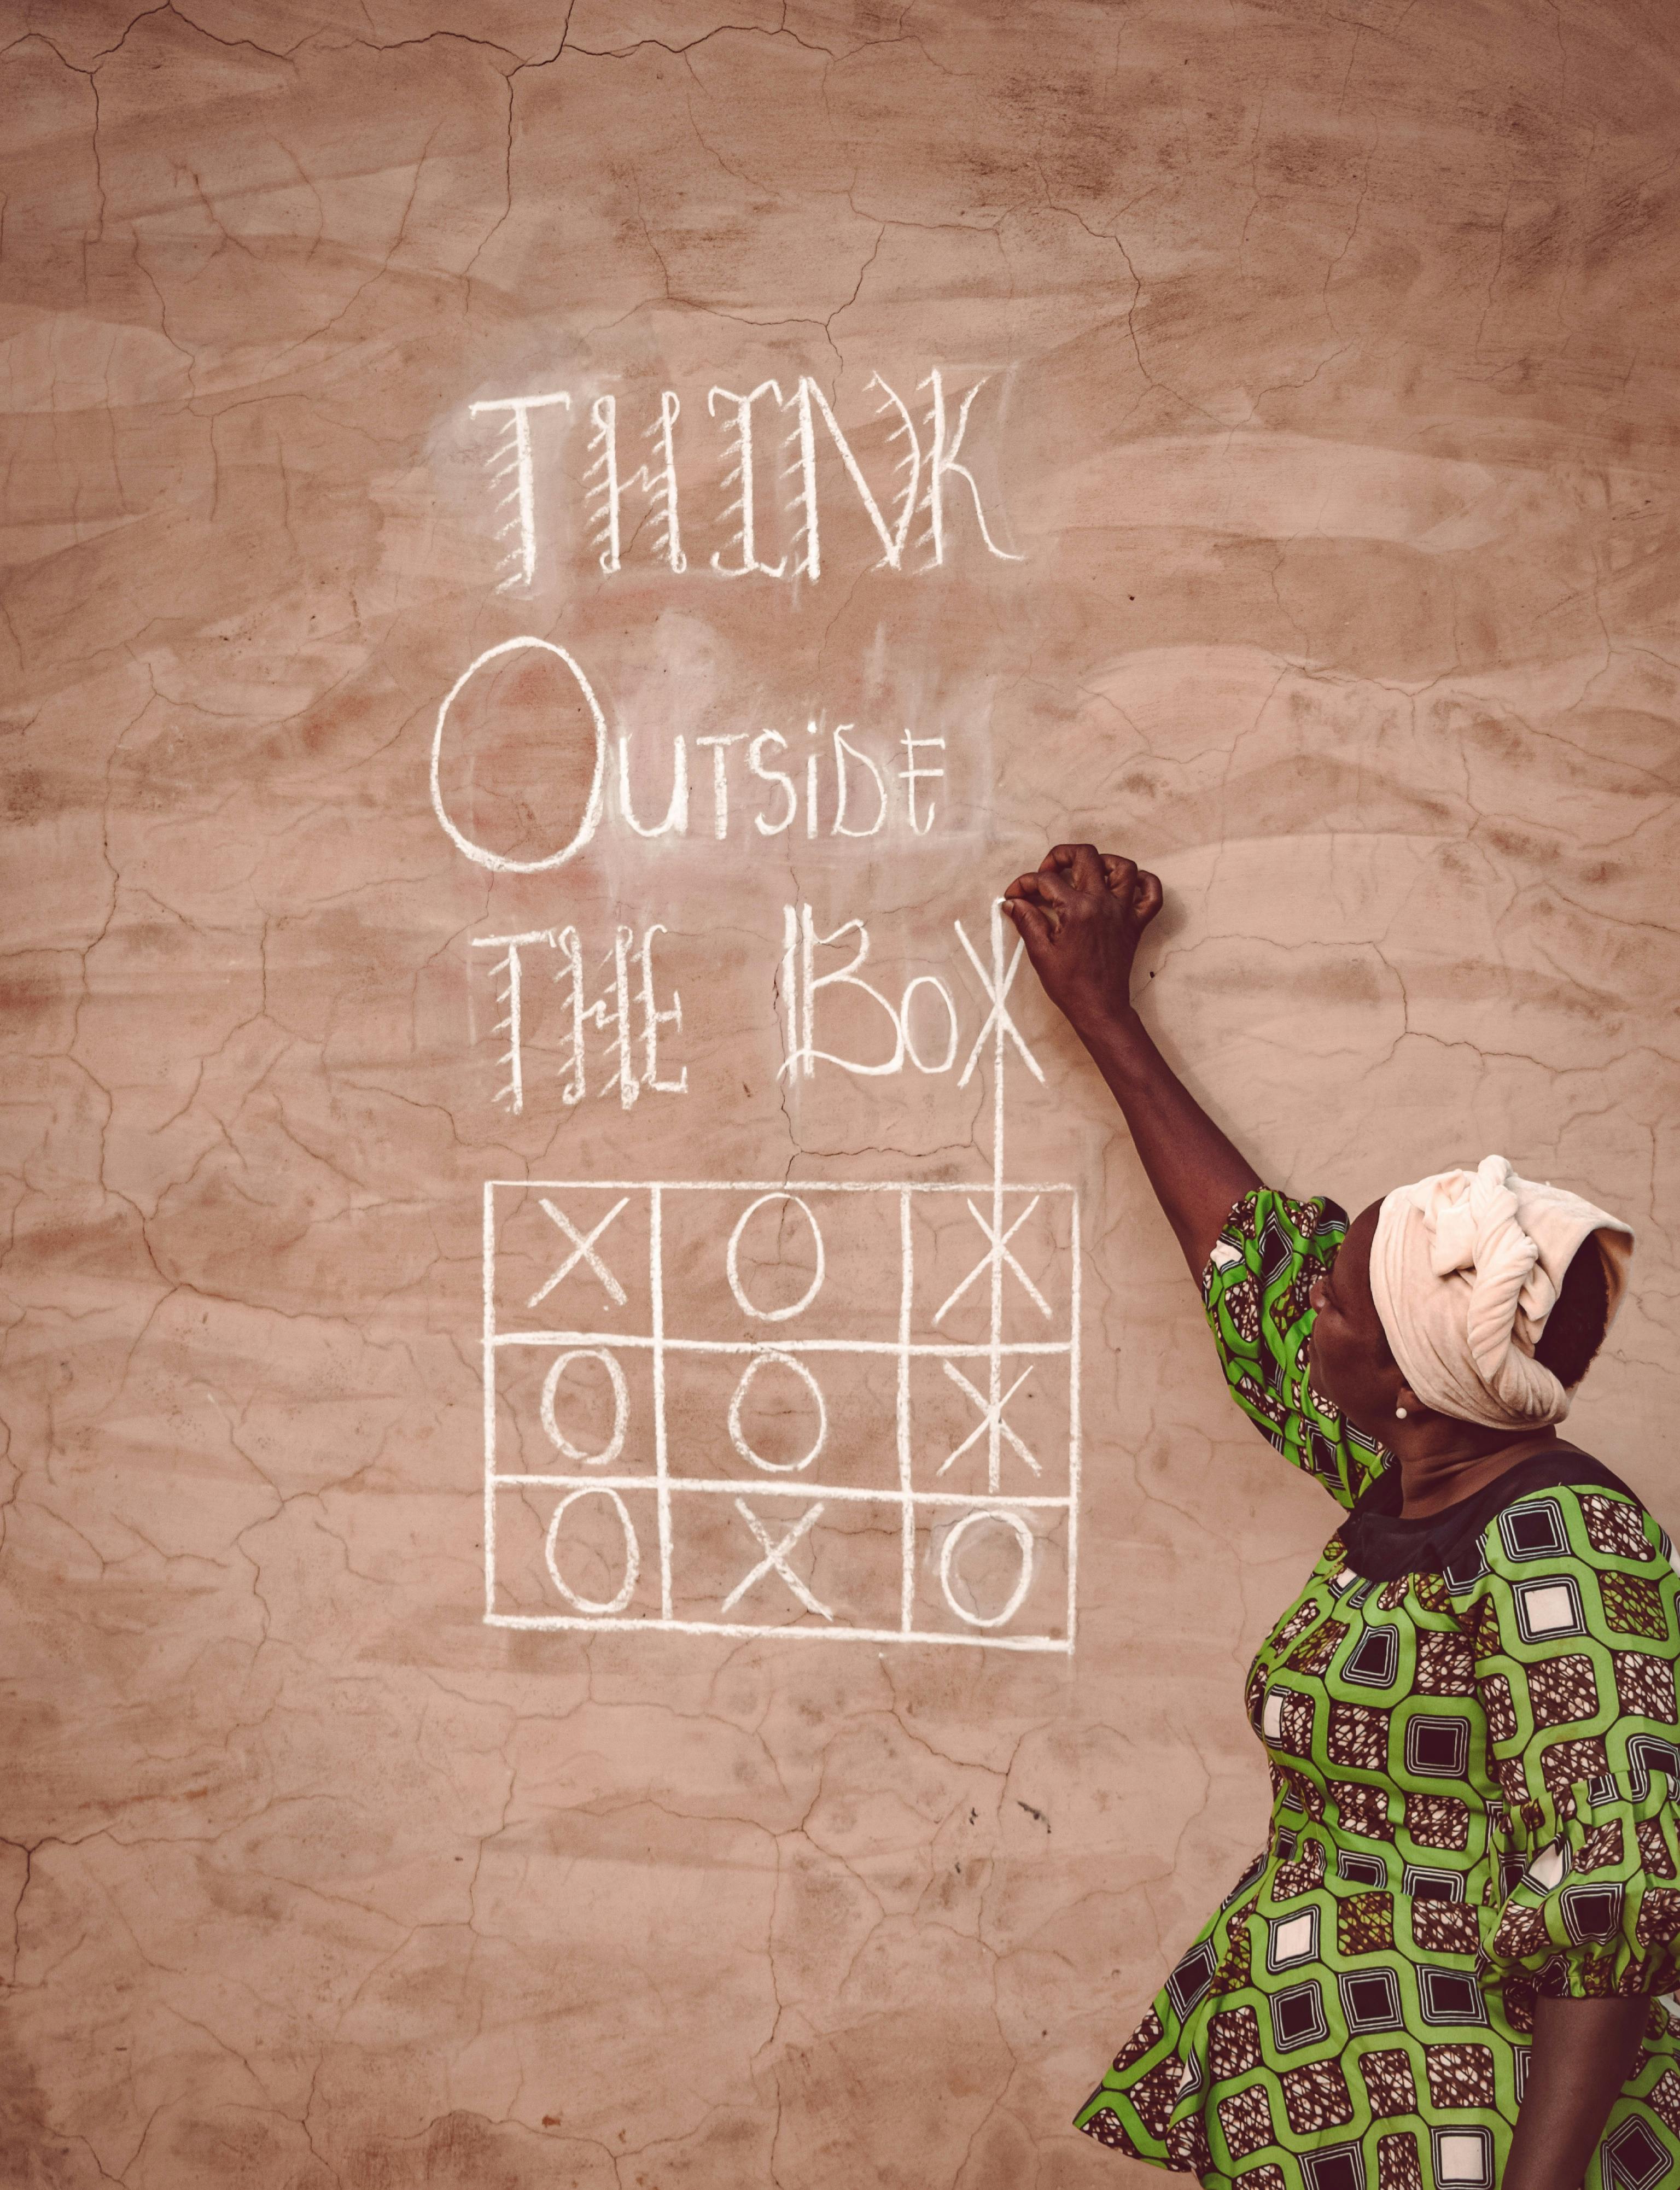 THINK
OUTSiDE
THE BoX
X O X
O O X
O X O